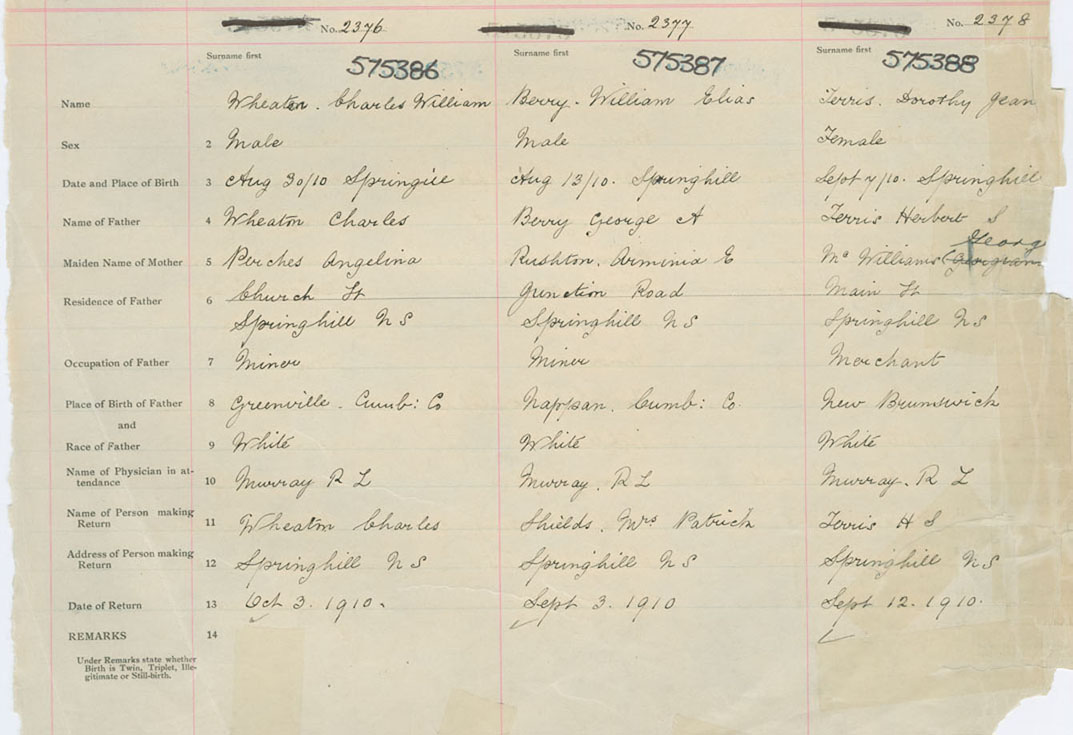 No. 2376 No. 2377 No. 2378
Surname first Surname first Surname first
575386 575387 575388
Name Wheaton. Charles William Berry. William Elias Ferris. Dorothy Jean
Sex 2 Male Male Female
Date and Place of Birth 3 Aug 30/10 Springill Aug 13/10. Springhill Sept 7/10. Springhill
Name of Father 4 Wheaton Charles Berry George A Ferris Herbert S
Georg
Maiden Name of Mother 5 Perches Angelina Rushton. Arminia E Mc Williams
Residence of Father 6 Church St Junction Road Main St
Springhill N S Springhill N S Springhill N S
Occupation of Father 7 Miner Miner Merchant
Place of Birth of Father 8 Greenville. Cumb: Co Nappan. Cumb: Co. New Brunswick
and
Race of Father 9 White White White
Name of Physician in at-
tendance 10 Murray R L Murray. R L Murray. R L
Name of Person making
Return 11 Wheaton Charles Shields. Mrs Patrick Ferris H S
Address of Person making
Return 12 Springhill N S Springhill N S Springhill N S
Date of Return 13 Oct 3. 1910. Sept 3. 1910 Sept 12. 1910.
REMARKS 14
Under Remarks state whether
Birth is Twin, Triplet, Ille-
gitimate or Still-birth.